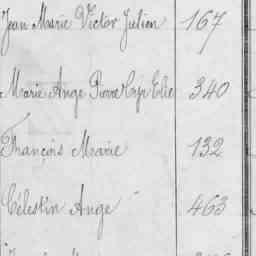 Jean Marie Victor Julien 167
Marie Ange Pierre Elie 340
François Marie 132
Célestin Ange 463